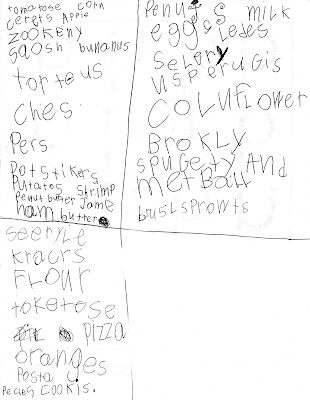 tomatose corn
cerets Apple
zookeny
sqosh bunanus
tortous
Ches
Pers
Potstikers
Putatos shrimp
Penut butter Jame
ham butter
Penuts milk
eggs ledes
Selory
usperugis
Coluflower
Brokly
spugety And
metball
buslsprowts
seeryle
kracrs
Flour
toketose
pizza
oranges
Posta
Peches COOKIS.